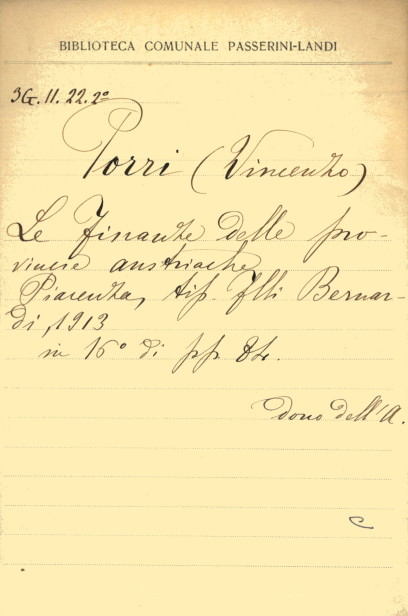 BIBLIOTECA COMUNALE PASSERINI-LANDI
3G. 11. 22. 2º
Porri (Vincenzo)
Le Finanze delle pro-
vincie austriache
Piacenza, tip. Flli Bernar-
di, 1913
in 16º di pp. 84.
dono dell'A.
C